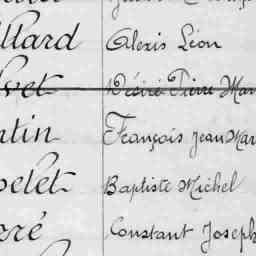 llard Alexis Léon
vet Désiré Pierre Mar
ntin François Jean Mar
pelet Baptiste Michel
rré Constant Joseph